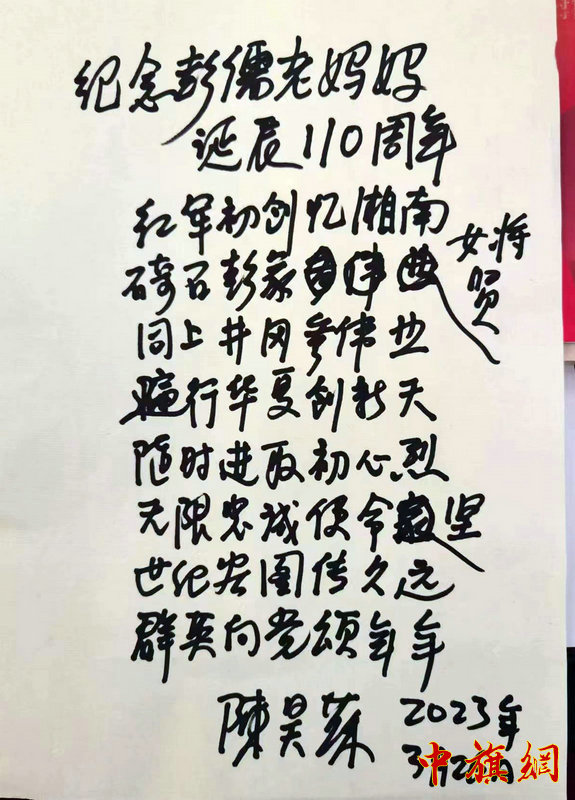 纪念彭儒老妈妈
诞辰110周年
红军初创忆湘南
碕石彭家女将贤
同上井冈参伟业
遍行华夏创新天
随时进取初心烈
无限忠诚使命坚
世纪宏图传久远
群英向党颂年年
陳昊苏 2023年
中旗網